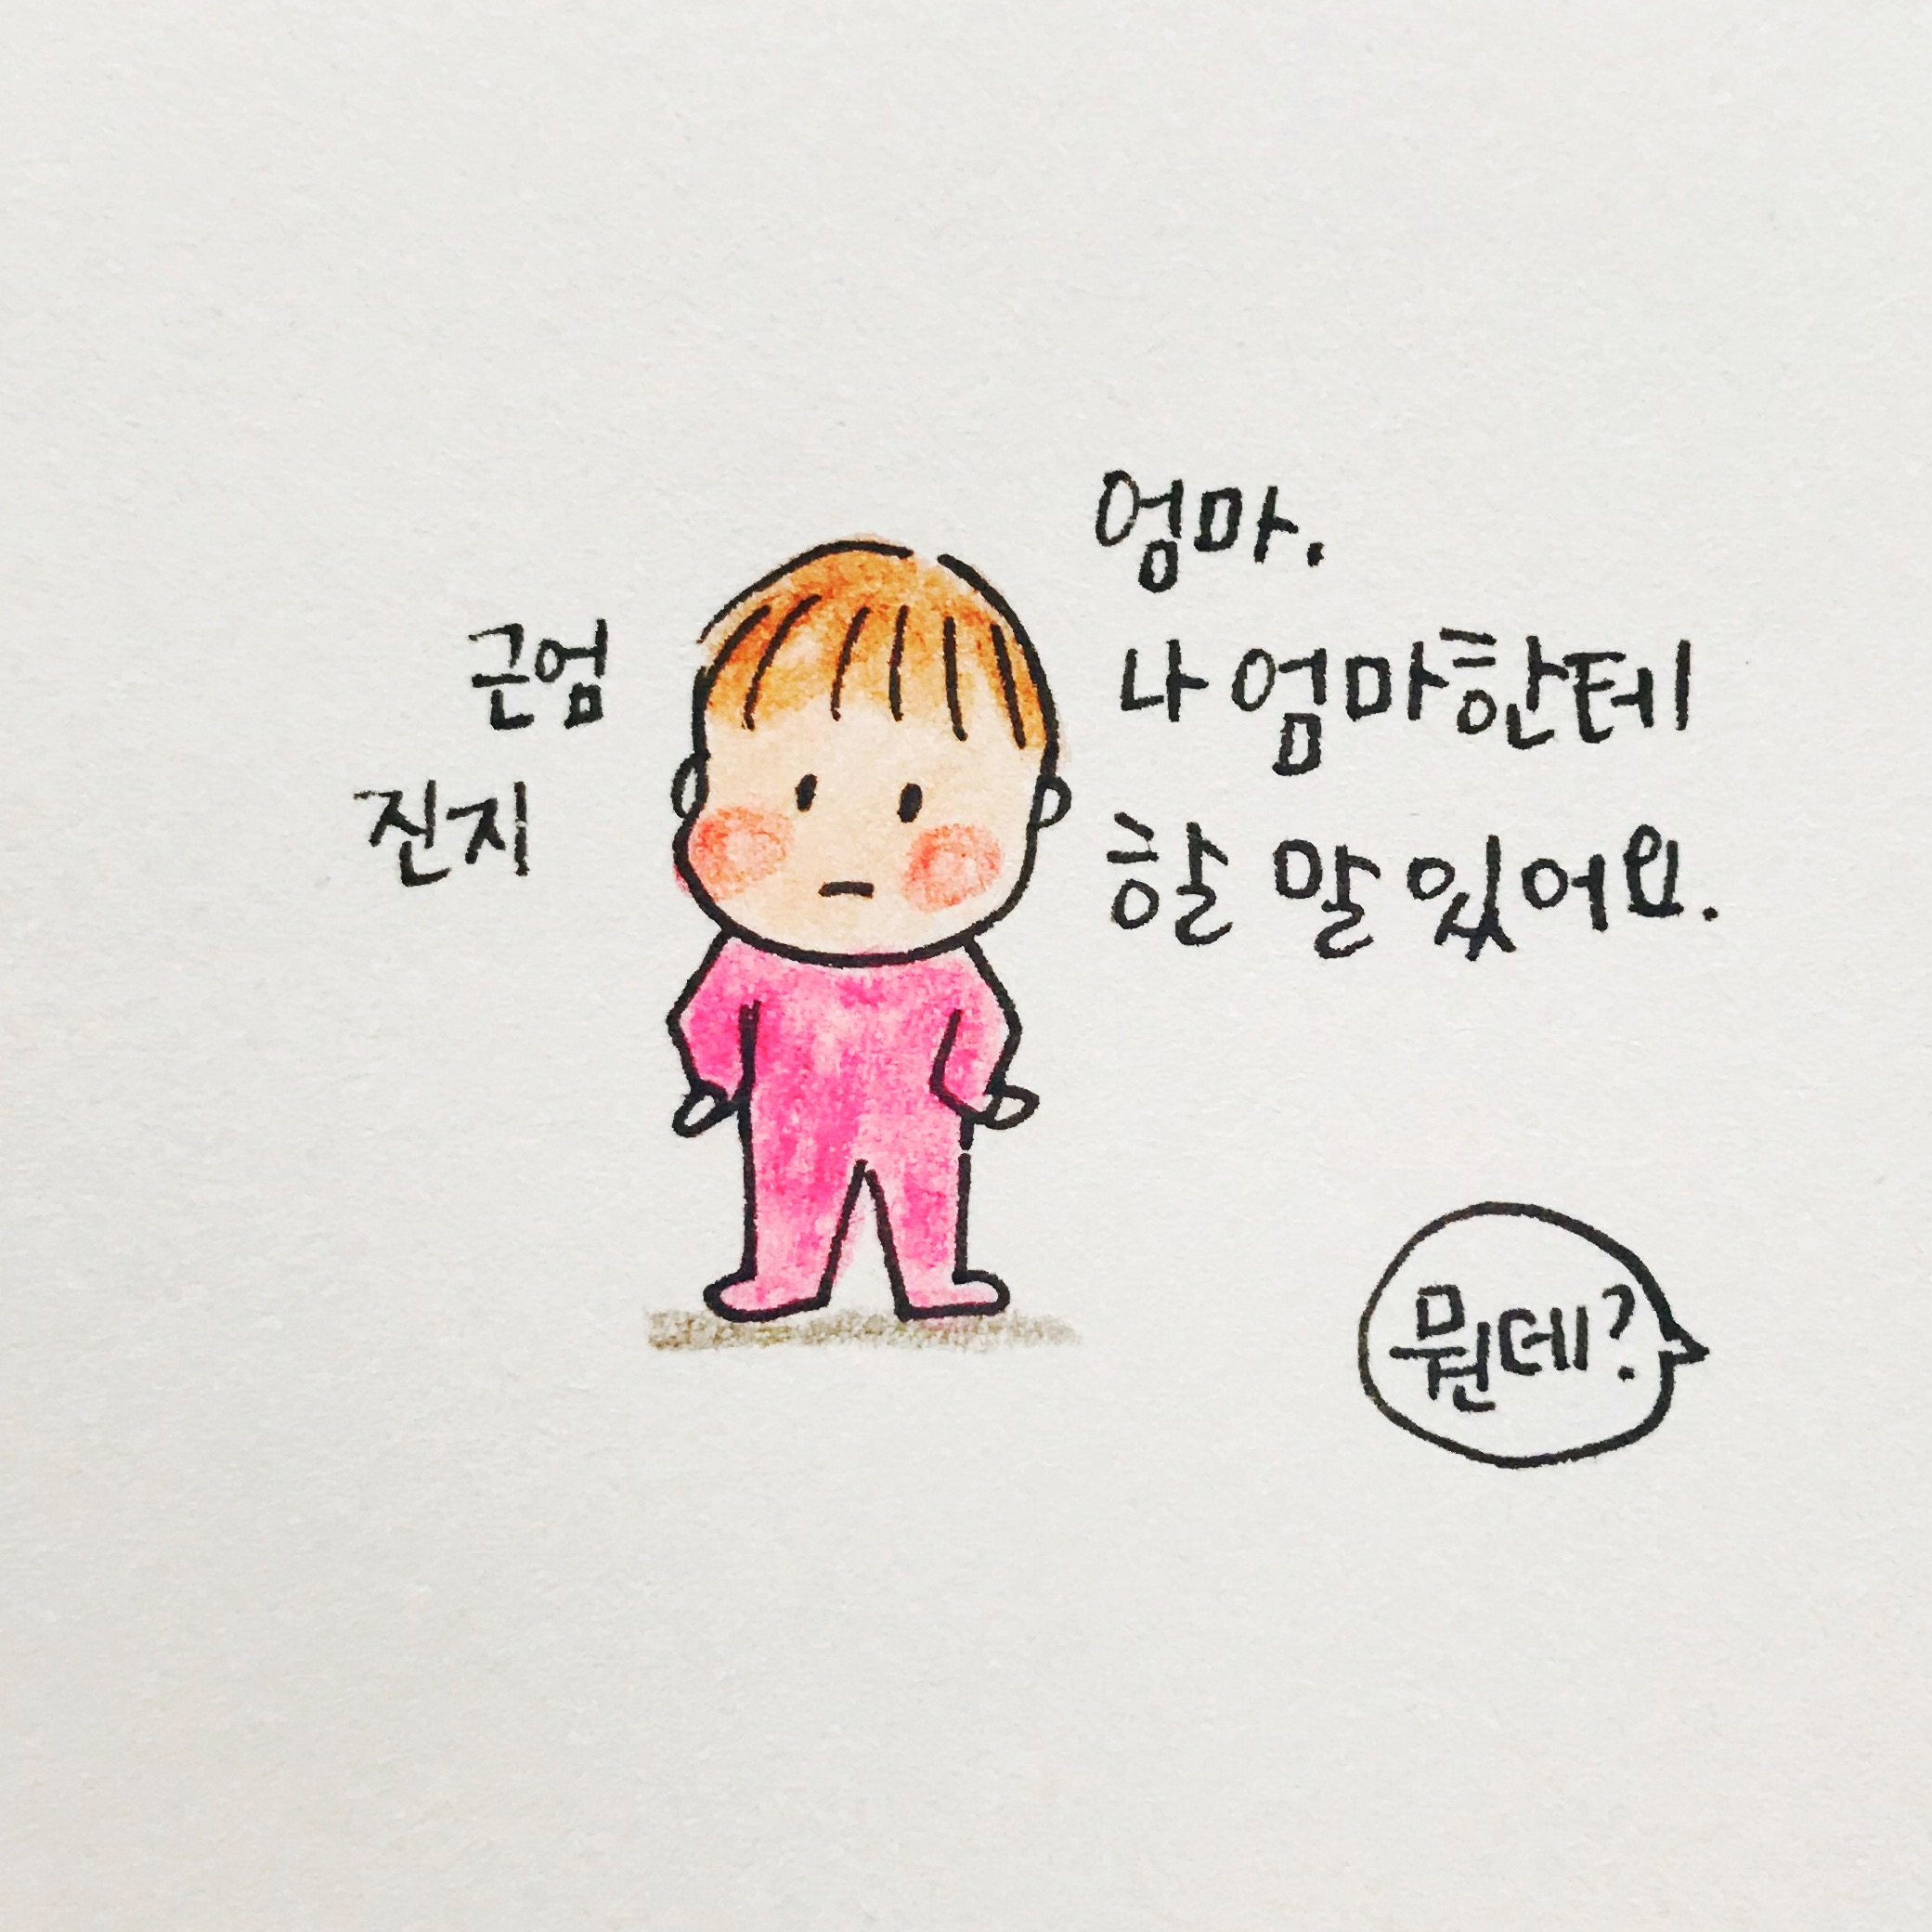 근엄
진지
엄마.
나 엄마한테
할 말 있어요.
뭔데?